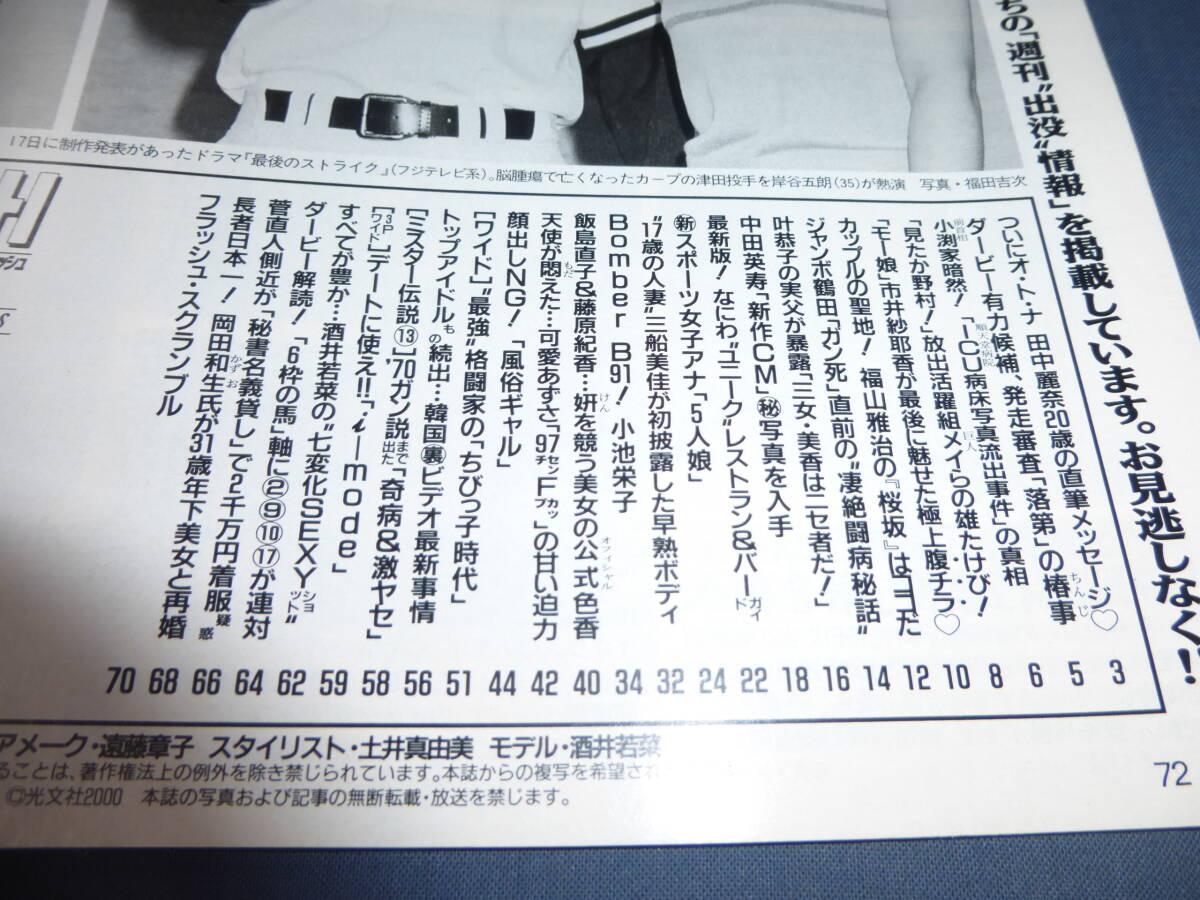 ちの「週刊"出没"情報」を掲載しています。お見逃しなく!!
17日に制作発表があったドラマ『最後のストライク』(フジテレビ系)。脳腫瘍で亡くなったカープの津田投手を岸谷五朗(35)が熱演 写真・福田吉次
ついにオ・ト・ナ 田中麗奈20歳の直筆メッセージ♡ 3
ダービー有力候補、発走審査「落第」の椿事 ちんじ 5
前首相 小渕家暗然!「順天堂病院 ICU病床写真流出事件」の真相 6
「見たか野村!」放出活躍組メイら巨人の雄たけび! 8
「モー娘」市井紗耶香が最後に魅せた極上腹チラ♡ 10
カップルの聖地! 福山雅治の『桜坂』はココだ 12
ジャンボ鶴田「ガン死」直前の"凄絶闘病秘話" 14
叶恭子の実父が暴露「三女・美香はニセ者だ!」 16
中田英寿「新作CM」㊙写真を入手 18
最新版! なにわ"ユニーク"レストラン&バーガイド 22
新スポーツ女子アナ「5人娘」 24
"17歳の人妻"三船美佳が初披露した早熟ボディ 32
Bomber B91! 小池栄子 34
飯島直子&藤原紀香…妍けんを競う美女の公式オフィシャル色香 40
天使が悶もだえた…可愛あずさ「97センチFカップ」の甘い迫力 42
顔出しNG!「風俗ギャル」 44
[ワイド]"最強"格闘家の「ちびっ子時代」 51
トップアイドルもの続出…韓国裏ビデオ最新事情 56
[ミスター伝説⑬]'70ガン説まで出た「奇病&激ヤセ」 58
[3Pワイド]デートに使え!!「i-mode」 59
すべてが豊か…酒井若菜の"七変化SEXYショット" 62
ダービー解読!「6枠の馬」軸に②⑨⑩⑰が連対 64
菅直人側近が「秘書名義貸し」で2千万円着服疑惑 66
長者日本一! 岡田和生かずお氏が31歳年下美女と再婚 68
フラッシュ・スクランブル 70
アメーク・遠藤章子 スタイリスト・土井真由美 モデル・酒井若菜
ることは、著作権法上の例外を除き禁じられています。本誌からの複写を希望され
©光文社2000 本誌の写真および記事の無断転載・放送を禁じます。
72